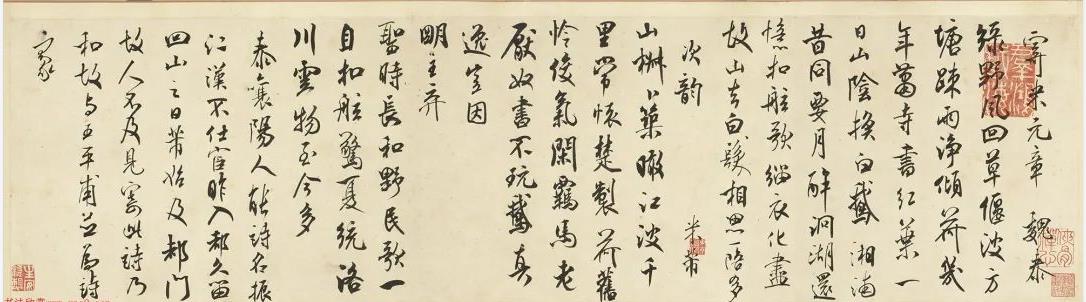 寄米元章 魏泰
綠野風回草偃波方
塘疎雨淨傾荷幾
年蕭寺書紅葉一
日山陰換白鵝湘浦
昔同要月醉洞湖還
憶扣舷歌緇衣化盡
故山去白髮相思一陪多
次韻 米芾
山椒卜築瞰江波千
里常懷楚製荷舊
怜俊氣閑羈馬老
厭奴書不玩鵝真
逸豈因
明主弃
聖時長和野民歌一
自扣舷驚夏統洛
川雲物至今多
泰襄陽人能詩名振
江漢不仕宦昨入都久留
四山之日芾始及都門
故人不及見寄此詩乃
和故与王平甫並為詩
豪